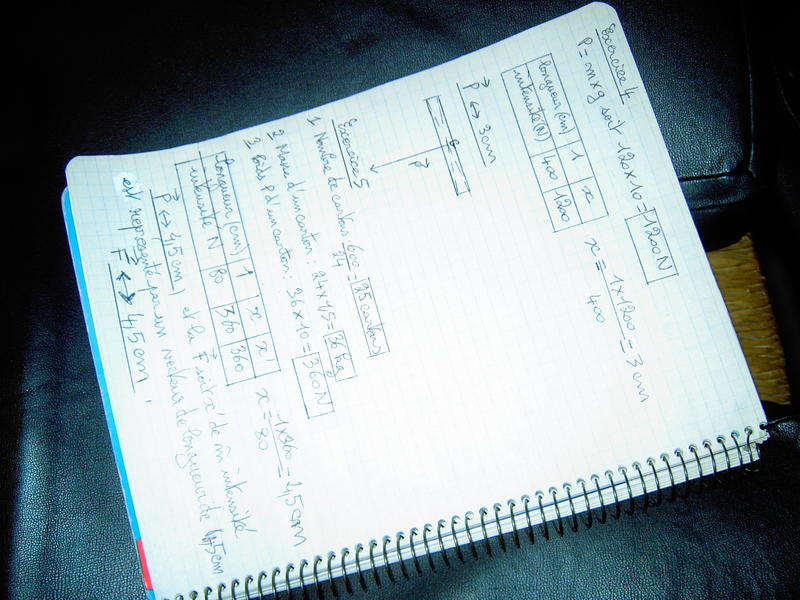 Exercice 4
P = m x g soit 120 x 10 = 1200N
longueur (cm) 1 x
intensité (N) 400 1200
x = 1 x 1200 / 400 = 3 cm
P ↔ 3 cm
G
P
Exercice 5
1 Nombre de cartons 600 / 24 = 25 cartons
2 Masse d'un carton : 24 x 1,5 = 36 kg
3 Poids P d'un carton : 36 x 10 = 360N
longueur (cm) 1 x x'
intensité N 80 360 360
x = 1 x 360 / 80 = 4,5 cm
P ↔ 4,5 cm) et la F soit x' de m̂ intensité
est représenté par un vecteur de longueur de 4,5 cm
F ↔ 4,5 cm.